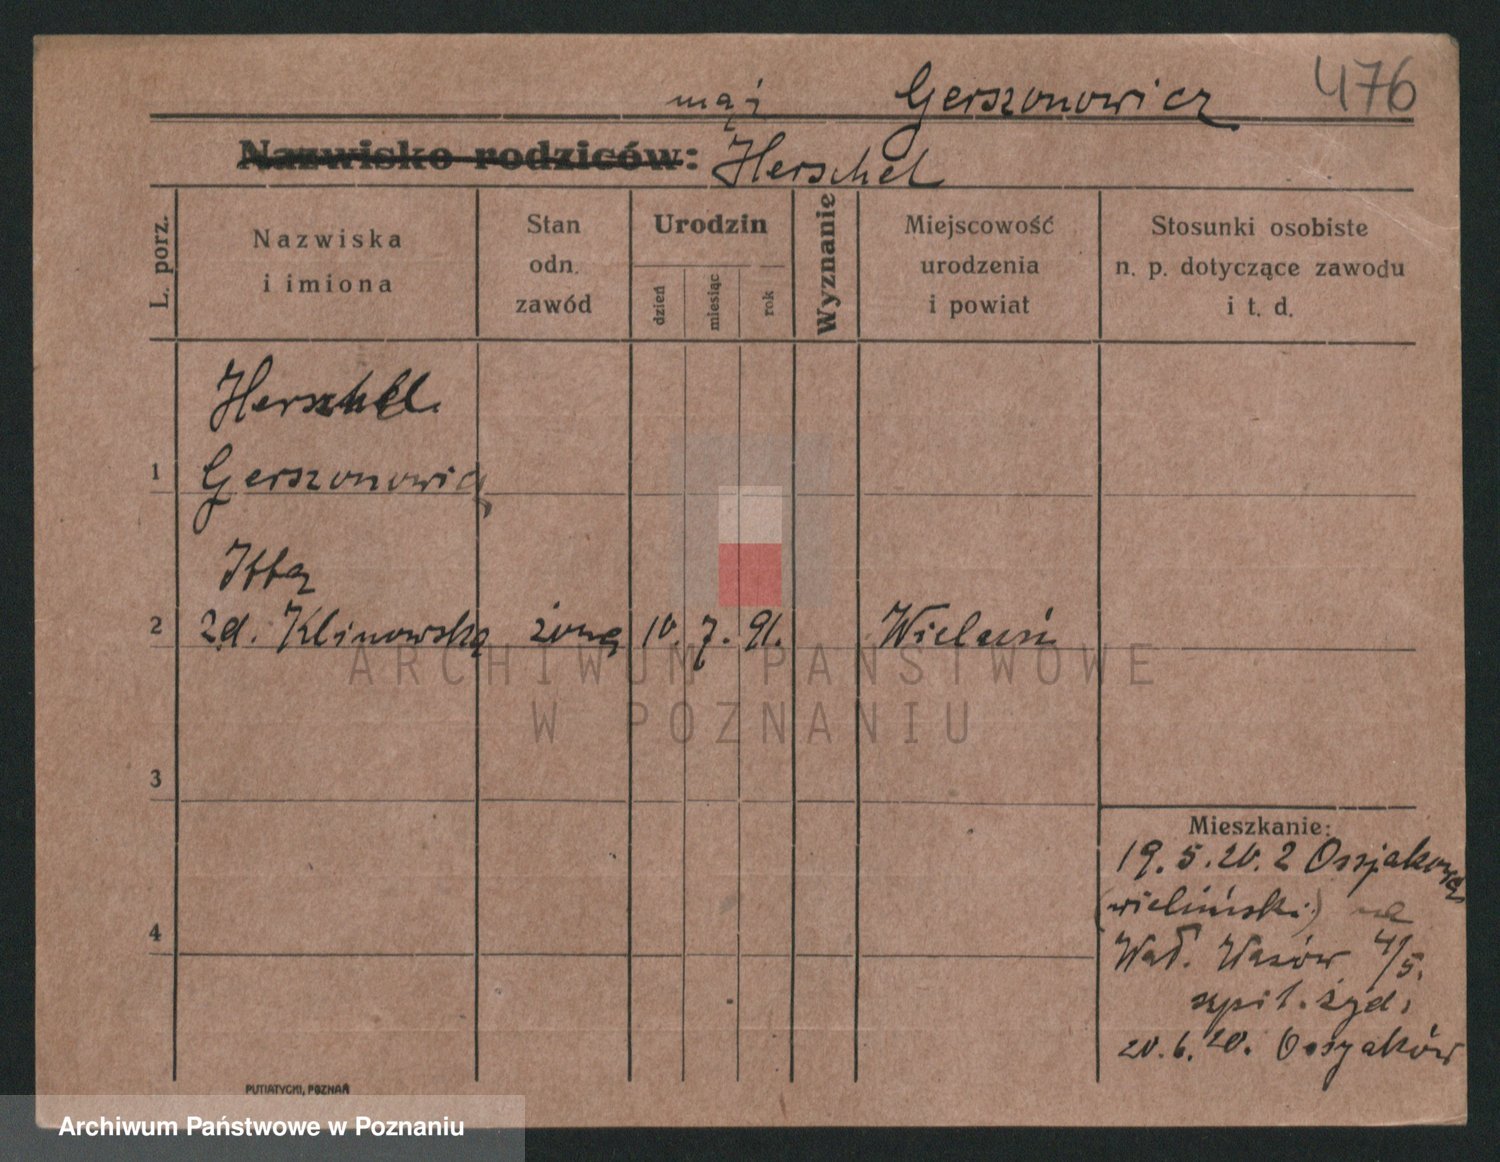 476
mąż Gerszonowicz
Nazwisko rodziców: Herschel
L. porz.
Nazwiska
i imiona
Stan
odn.
zawód
Urodzin
dzień
miesiąc
rok
Wyznanie
Miejscowość
urodzenia
i powiat
Stosunki osobiste
n. p. dotyczące zawodu
i t. d.
Herschel
1 Gerszonowicz
Itta
2 zd. Klinowska żona 10. 7. 91. Wieluń
3
4
Mieszkanie:
19.5.20. z Ossjakowa
(wieluński) na
Wały 4/5.
szpit. żyd.
20.6.20. Ossyaków
PUTIATYCKI, POZNAŃ
ARCHIWUM PAŃSTWOWE
W POZNANIU
Archiwum Państwowe w Poznaniu